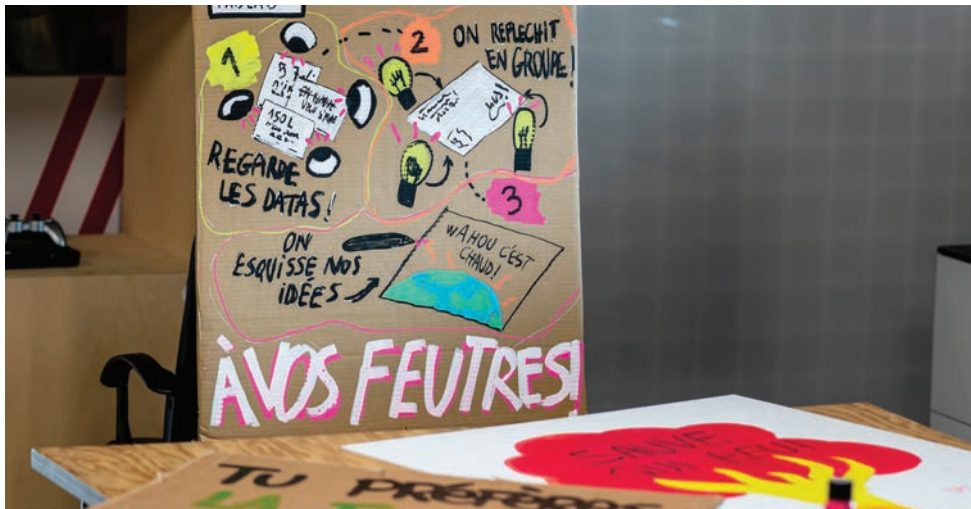 1
REGARDE
LES DATAS !
150L
2
ON REFLECHIT
EN GROUPE !
3
ON
ESQUISSE NOS
IDÉES
WAHOU C'EST
CHAUD !
À VOS FEUTRES !
SAUVE
TU PRÉFÈRES
LA